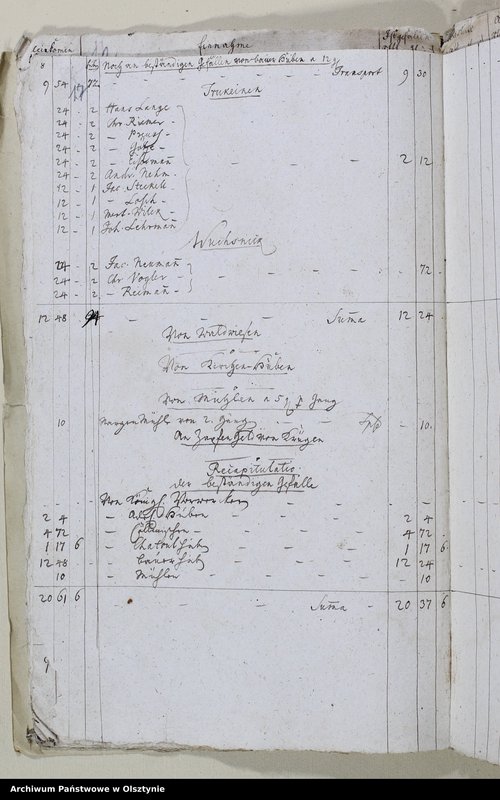 Einkomen Einnahme
8 Noch an beständigen Gefällen von bauer Huben a 12 g
9 54 72 Transport 9 30
Trukeinen
24 - 2 Hans Lange
24 - 2 Chr Riemer
24 - 2 - Preuss
24 - 2 -
24 - 2 - 2 12
24 - 2 Andr. Nehm
12 - 1 Jac. Steckel
12 - 1 - Losch
12 - 1 Mert.
12 - 1 Joh. Lehrman̄
Wuchsnick
24 - 2 Jac. Neuman̄
24 - 2 Chr Vogler - 72
24 - 2 - Reiman̄
12 48 94 Sum̄a 12 24
Von Waldwiesen
Von Kirchen-Huben
Von Mühlen a 5 g p Gang
10 Mühle von 2. Gäng - 10
An Zapfen Geld von Krügen
Recapitulatio
der beständigen Gefälle
Von Königl. Vorwercken
2 4 - Huben 2 4
4 72 - Cöllmischen 4 72
1 17 6 - Chatoul hub 1 17 6
12 48 - bauer hub 12 24
10 - Mühlen - 10
20 61 6 Sum̄a 20 37 6
9
Archiwum Państwowe w Olsztynie